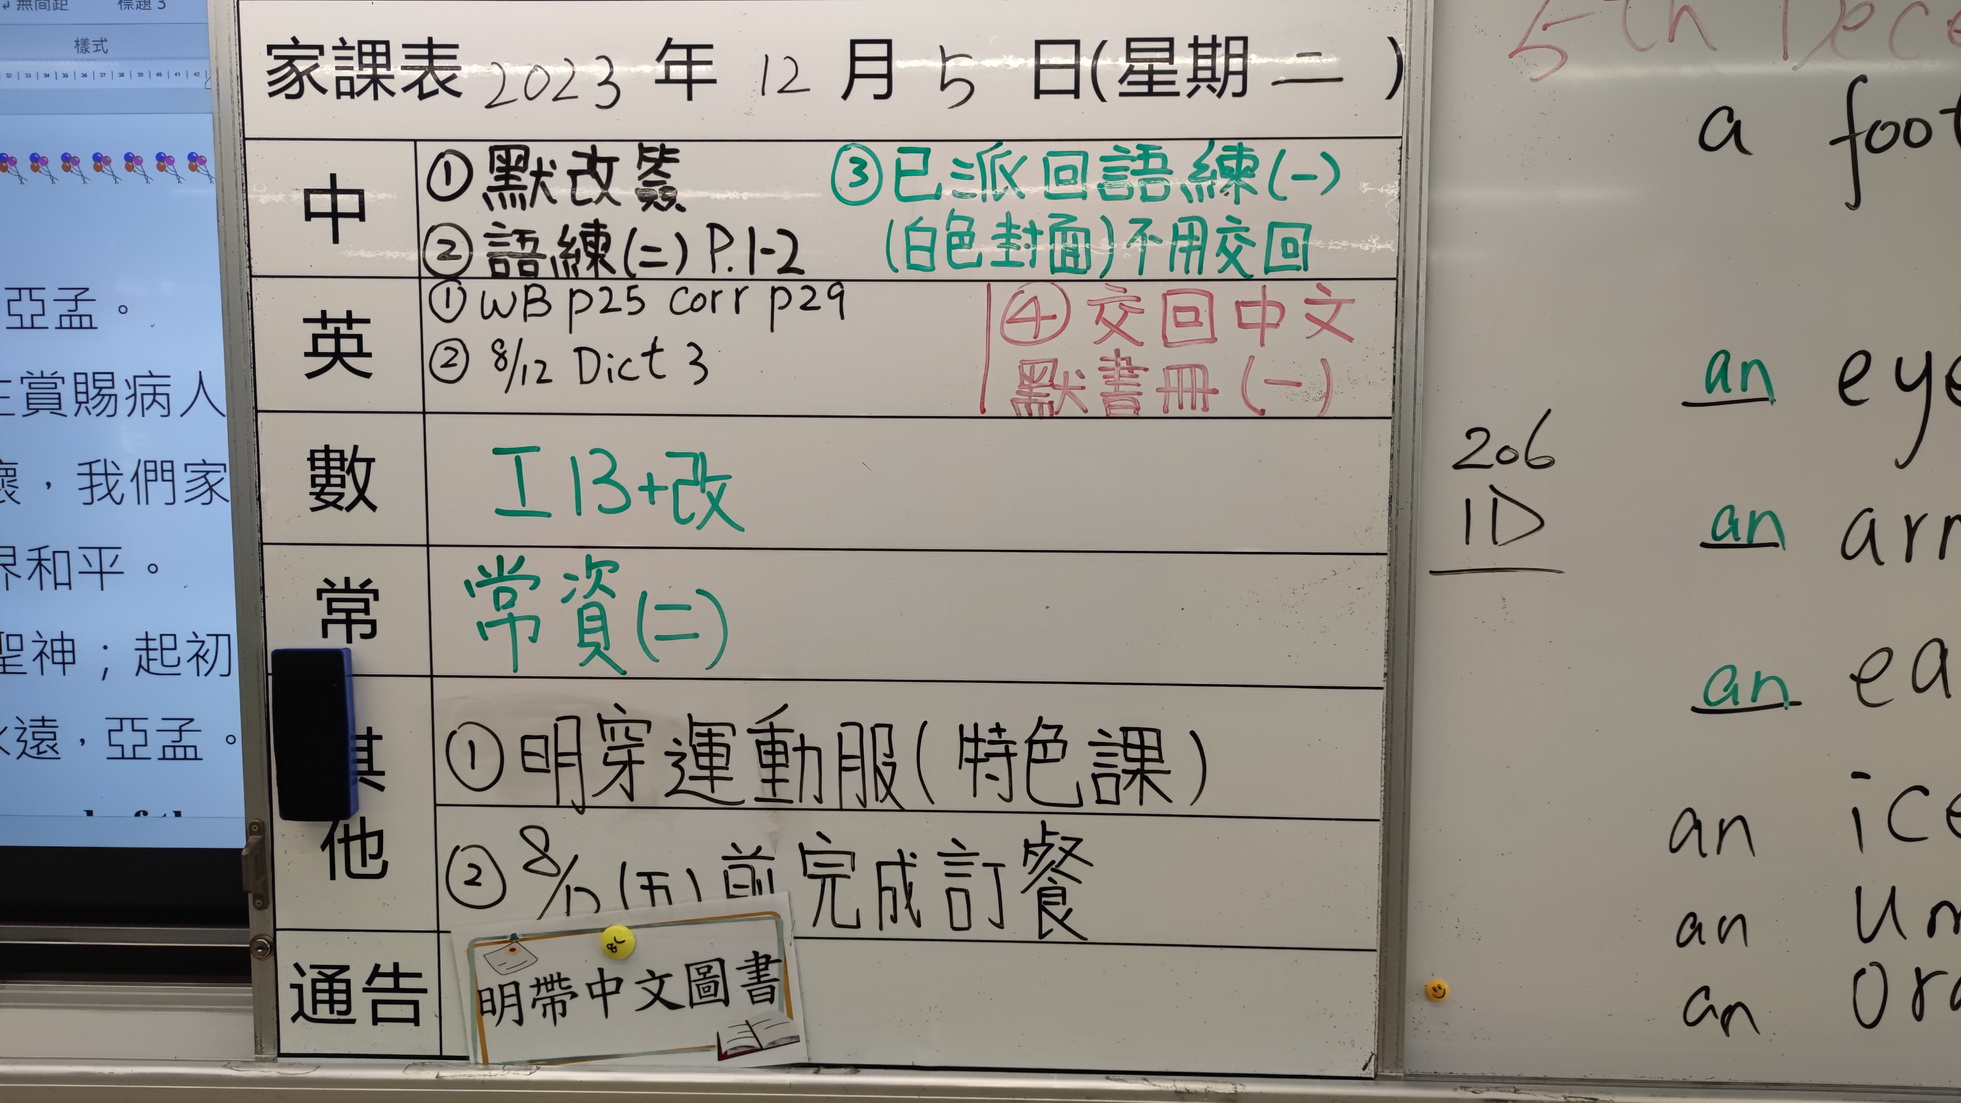 無間距
標題 3
樣式
亞孟。
賞賜病人
，我們家
和平。
聖神；起初
遠，亞孟。
家課表 2023 年 12 月 5 日(星期二)
中
①默改簽
②語練(二) P.1-2
③已派回語練(一)
(白色封面)不用交回
英
① WB p25 corr p29
② 8/12 Dict 3
④交回中文
默書冊(一)
數
工13+改
常
常資(二)
其他
①明穿運動服(特色課)
②8/12(五)前完成訂餐
通告
明帶中文圖書
206
1D
5th Dece
a foot
an eye
an arm
an ea
an ice
an um
an ora